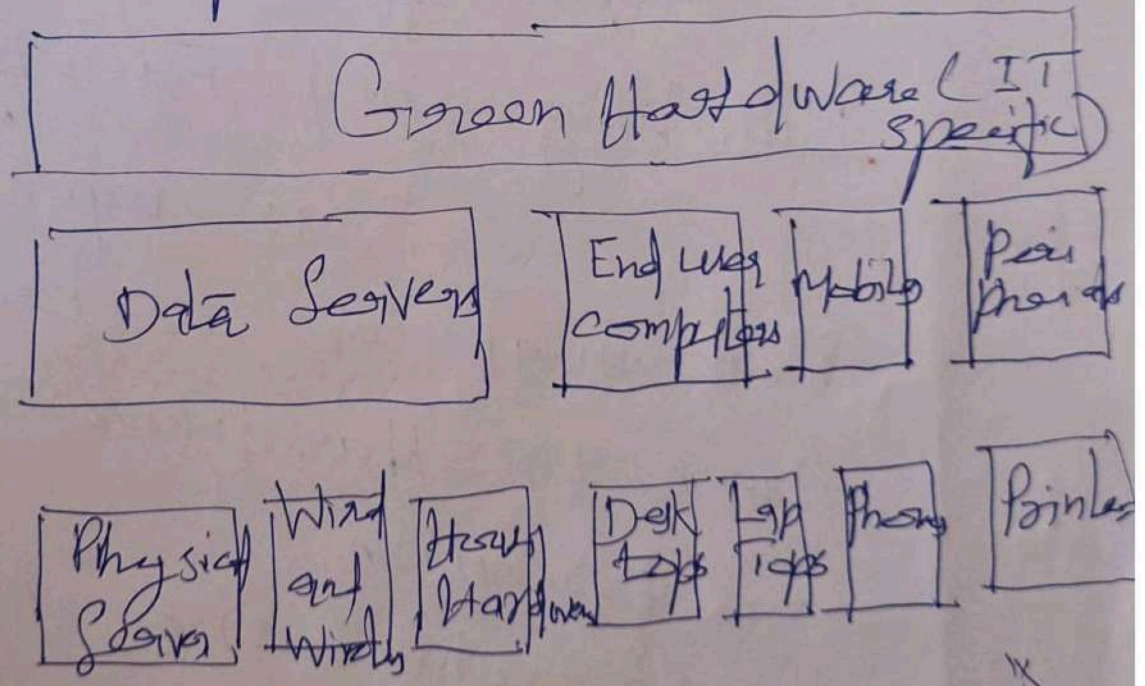 Green Hardware (IT
specific)
Data Servers
End user
computers
Mobile
Peri
pherals
Physical
Server
Wird
and
Wirdls
Desk
tops
Lap
Tops
Phones
Printer